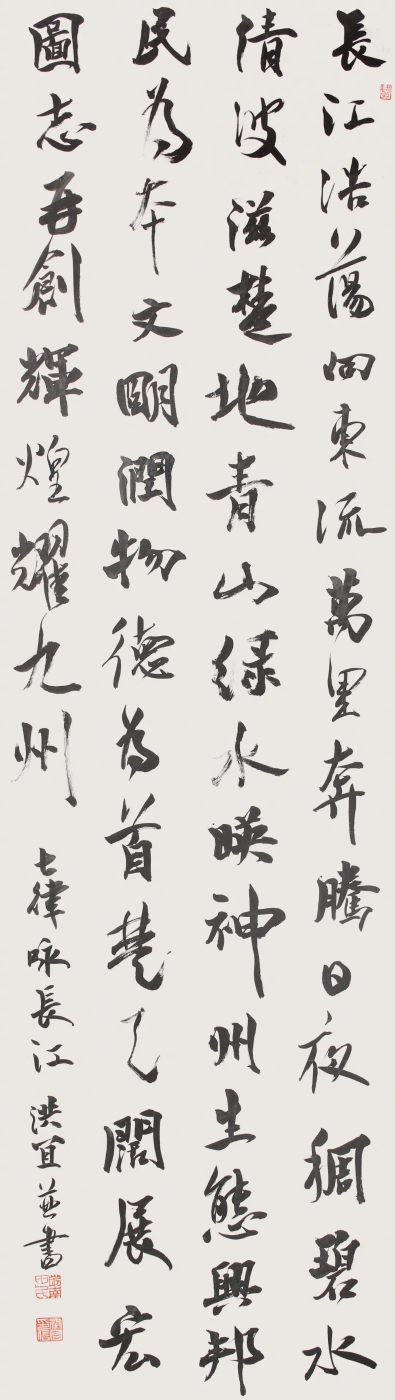 長江浩蕩向東流萬里奔騰日夜稠碧水
清波滋楚地青山绿水暎神州生態興邦
民為本文朙潤物德為首楚天闊展宏
圖志再創輝煌耀九州
七律咏長江 洪宜并書